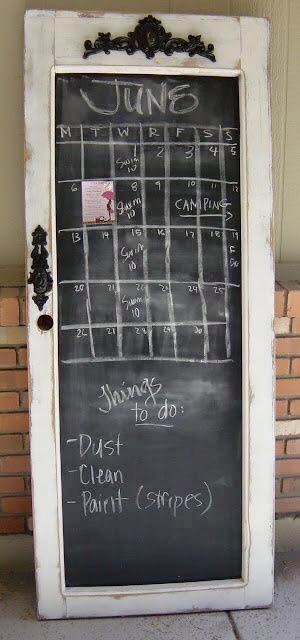 JUNE
M T W R F S S
1 2 3 4 5
Swim
10
6 8 9 10 11 12
Swim
10
CAMPING
13 14 15 16 17 18 19
Swim
10
F
20 21 22 23 24 25
Swim
10
26 27 28 29 30
Things
to do:
- Dust
- Clean
- Paint (stripes)